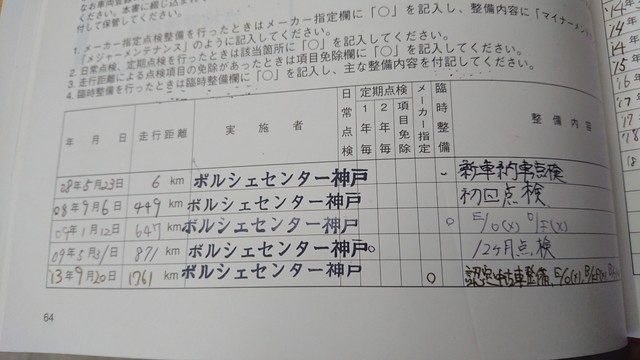 付して保管してください。
1. メーカー指定点検整備を行ったときはメーカー指定欄に「○」を記入し、整備内容に「マイナーメンテ
「メジャーメンテナンス」のように記入してください。
2. 日常点検、定期点検を行ったときは該当箇所に「○」を記入してください。
3. 走行距離による点検項目の免除があったときは項目免除欄に「○」を記入してください。
4. 臨時整備を行ったときは臨時整備欄に「○」を記入し、主な整備内容を付記してください。
年 月 日 走行距離 実施者 日常点検 定期点検 1年毎 2年毎 項目免除 メーカー指定 臨時整備 整備内容
08年5月23日 6 km ポルシェセンター神戸 新車納車点検
08年9月6日 449 km ポルシェセンター神戸 初回点検
09年1月12日 647 km ポルシェセンター神戸 ○ E/O(x) O/F(x)
09年5月31日 871 km ポルシェセンター神戸 ○ 12ヶ月点検
13年9月20日 1761 km ポルシェセンター神戸 ○ 認定中古車整備、E/O(x),
64